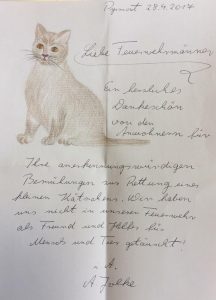 Pyrmont 28.4.2014
Liebe Feuerwehrmänner
Ein herzliches
Dankeschön
von den
Anwohnern für
Ihre anerkennungswürdigen
Bemühungen zur Rettung eines
kleinen Kätzchens. Wir haben
uns nicht in unseren Feuerwehr
als Freund und Helfer für
Mensch und Tier getäuscht!
i. A.
A